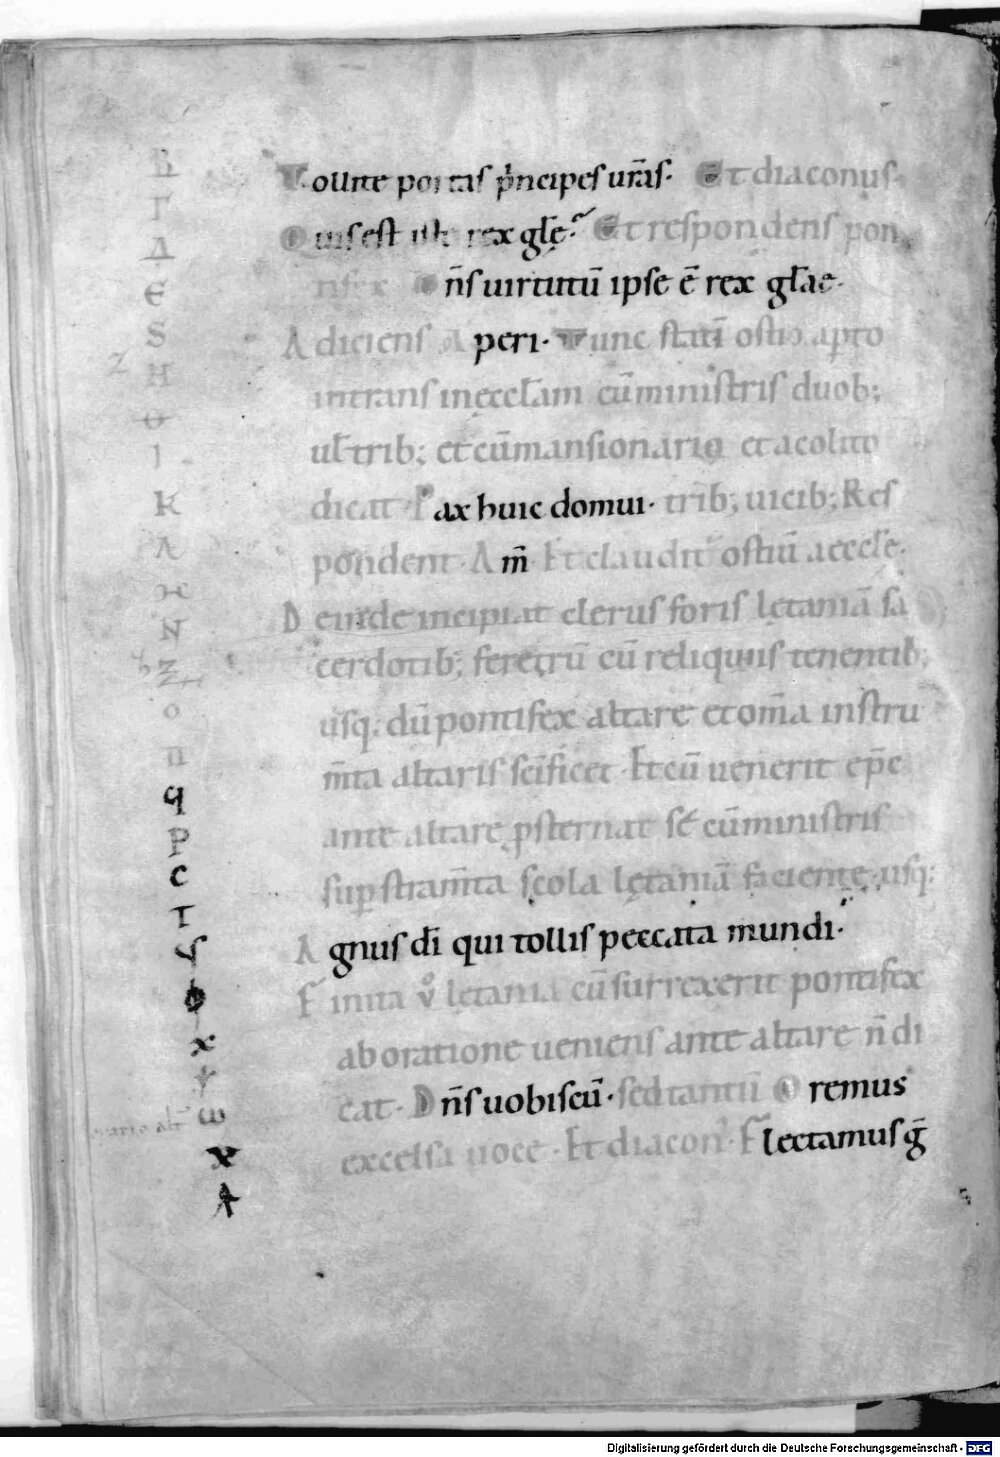 Tollite portas p̍ncipes ur̄as· Et diaconus·
Quis est iste rex gl̄ę· Et respondens pon
tifex Dn̄s uirtutū ipse ē rex gl̄ae·
Adiciens Aperi· Tunc statī ostio apto
intrans in ęccl̄am cū ministris duob;
ul̄ trib; et cū mansionario et acolito
dicat· Pax huic domui· trib; uicib; Res
pondent· Am̄ Et claudit ostiū aeccl̄ę·
Deinde incipiat clerus foris lętaniā sa
cerdotib; feretrū cū reliquiis tenentib;
usq; dū pontifex altare et om̄a instru
m̄ta altaris sc̄ificet· Et cū uenerit ep̄c
ante altare ꝓsternat sé cū ministris
suꝑ stram̄ta scola lętaniā faciente· usq;
Agnus dī qui tollis peccata mundi·
Finita v̊ letania cū surrexerit pontifex
ab oratione ueniens ante altare n̄ di
cat· Dn̄s uobiscū· sed tantū Oremus
excelsa uoce· Et diacon̄· Flectamus ḡ
B
Γ
Δ
Є
S
Z
H
Θ
I
K
Λ
N
Z
O
Π
q
P
C
T
Y
Φ
X
Ψ
ω
A
Digitalisierung gefördert durch die Deutsche Forschungsgemeinschaft - DFG